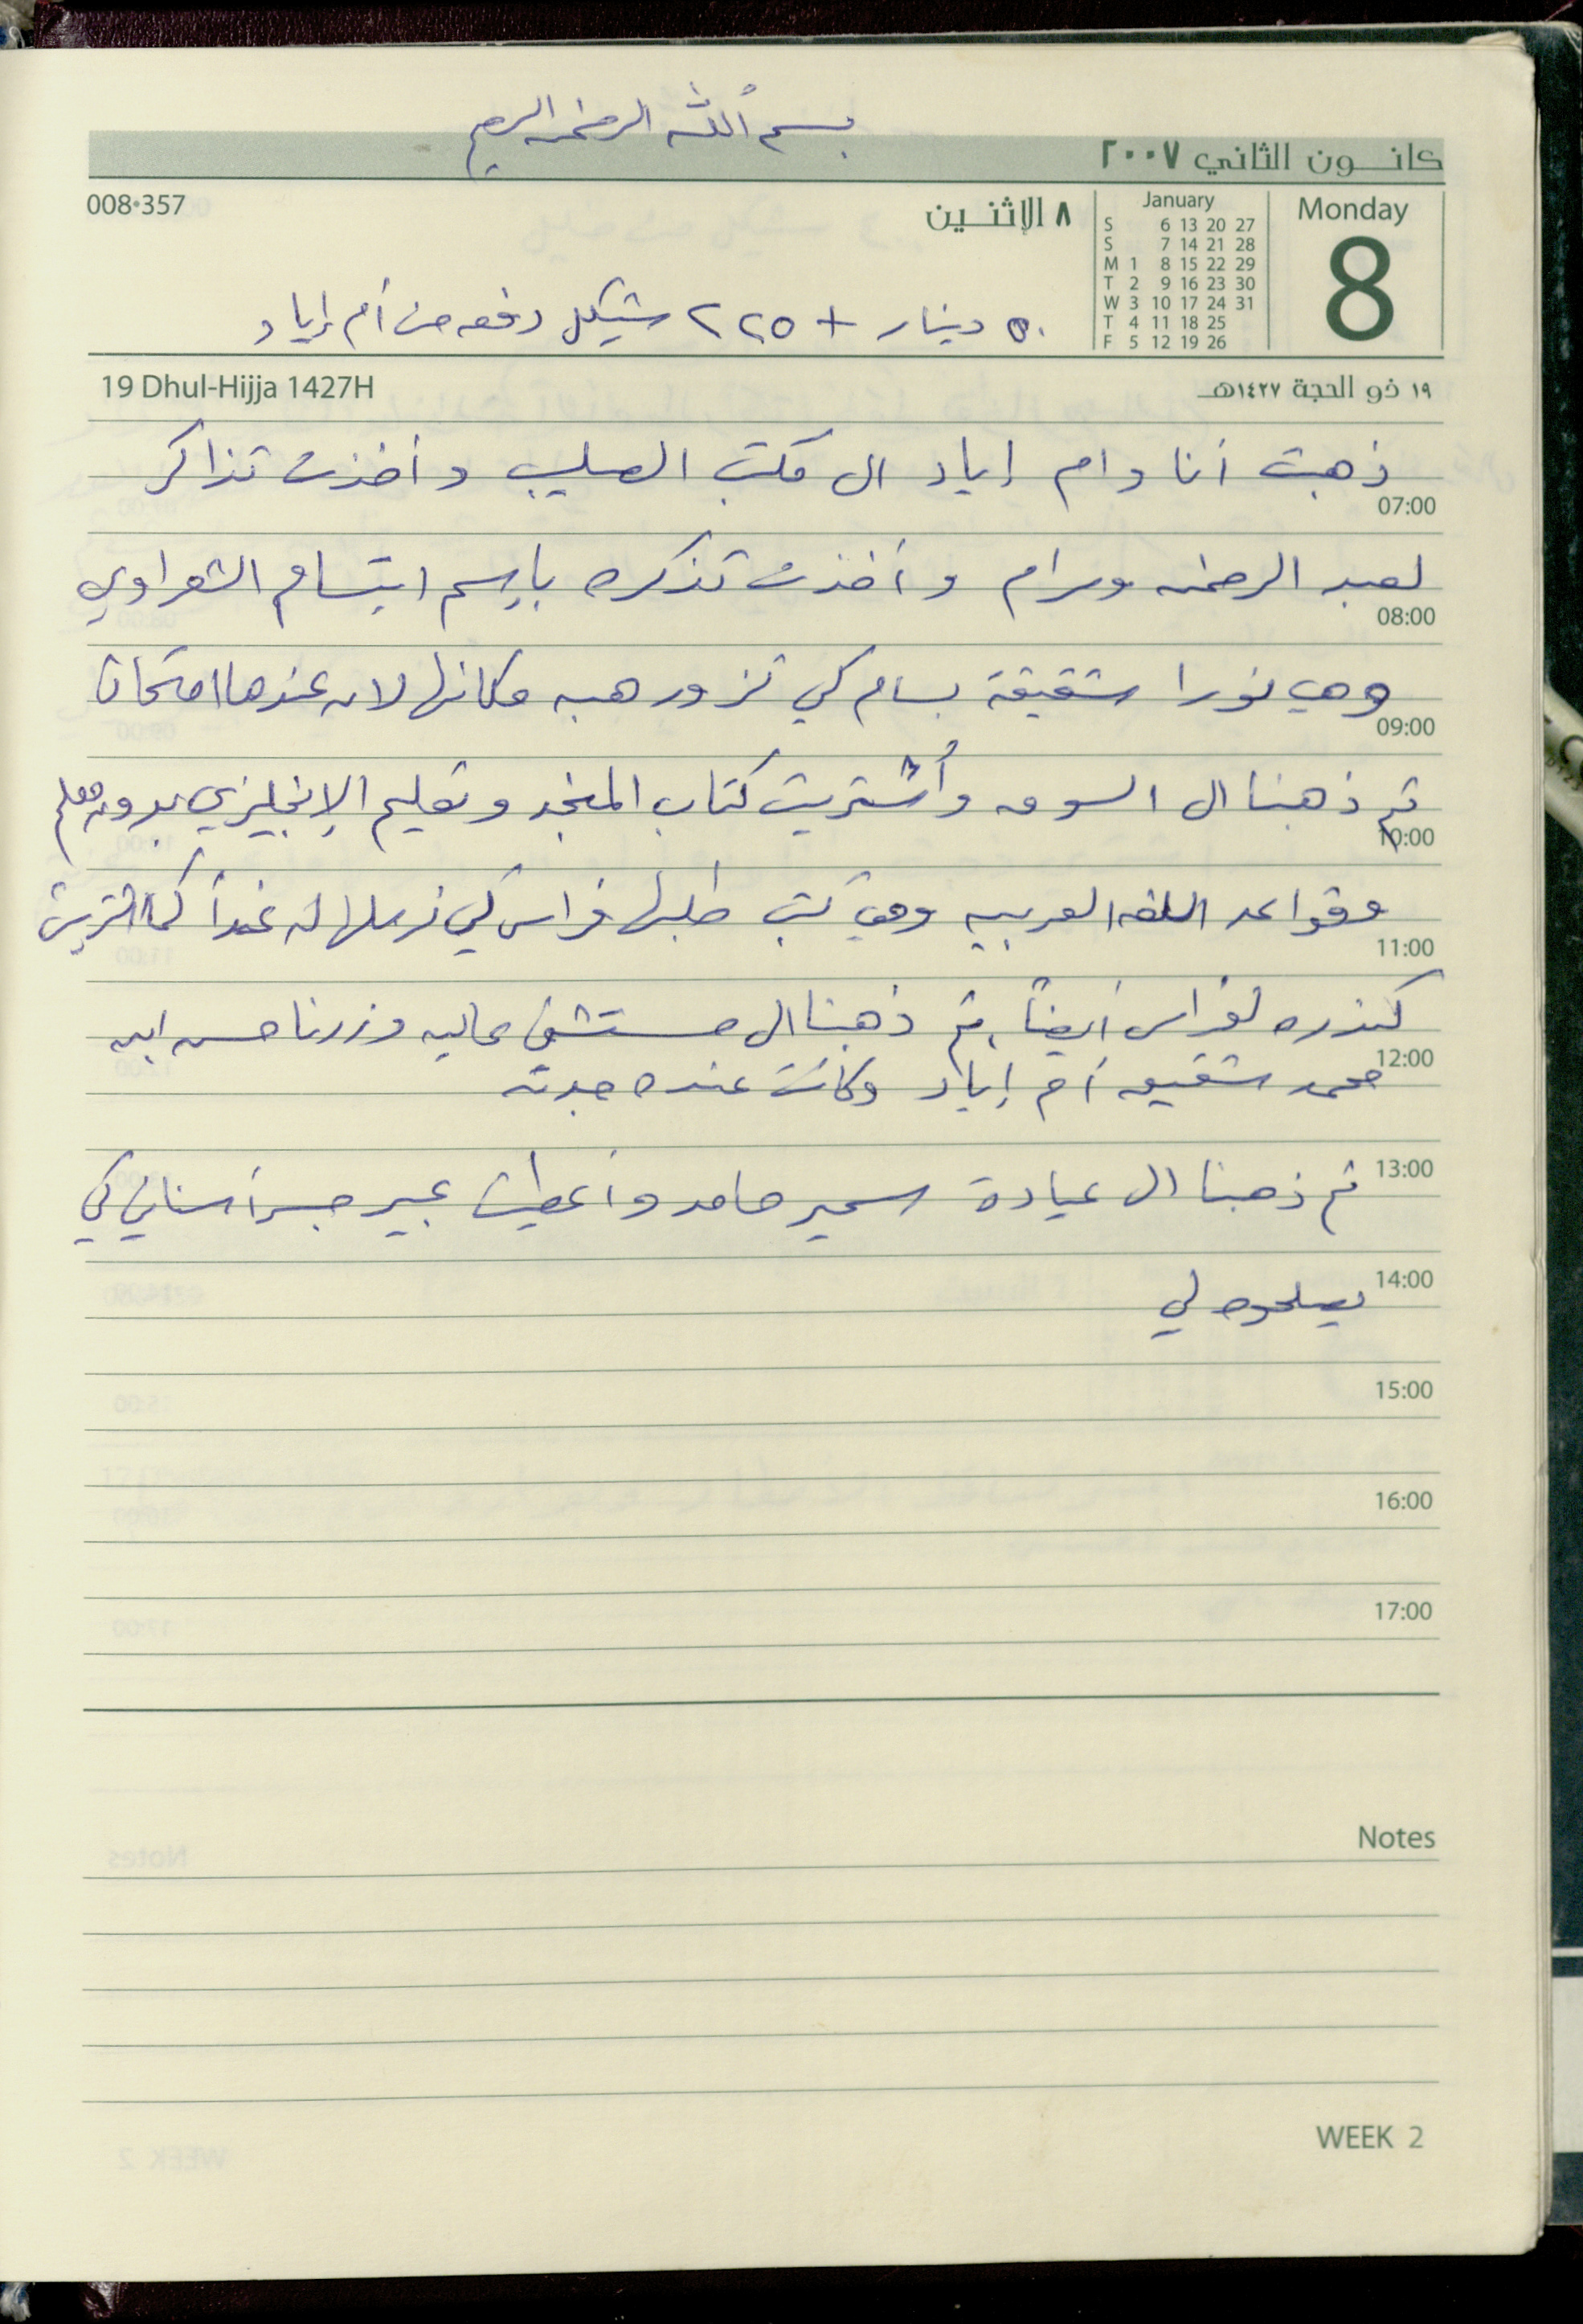 بسم ألله الرحمن الرحيم
كانون الثاني ٢٠٠٧
008•357
٨ الإثنين
January
S 6 13 20 27
S 7 14 21 28
M 1 8 15 22 29
T 2 9 16 23 30
W 3 10 17 24 31
T 4 11 18 25
F 5 12 19 26
Monday
8
٥٠ دينار + ٢٢٥ شيكل دفعه من أم إياد
19 Dhul-Hijja 1427H
١٩ ذو الحجة ١٤٢٧هـ
ذهبت أنا وام إياد الى مكتب الصليب وأخذت تذاكر
07:00
لعبد الرحمن ومرام وأخذت تذكره بإسم ابتسام الشعراوي
08:00
وهي نورا شقيقة بسام كي تزور هبه مكانها لان عندها امتحان
09:00
ثم ذهبنا الى السوق وأشتريت كتاب المنجد وتعليم الإنجليزي بدون معلم
10:00
وقواعد اللغه العربيه وهي كتب طلبها فراس كي نرسلها له غداً كما اشتريت
11:00
كندره لفراس أيضاً، ثم ذهبنا الى مستشفى عاليه وزرنا حسن ابن
12:00
محمد شقيق أم إياد وكانت عنده جدته
13:00
ثم ذهبنا الى عيادة سمير حامد وأعطيت عبير جسر أسناني كي
14:00
يصلحوه لي
15:00
16:00
17:00
Notes
WEEK 2